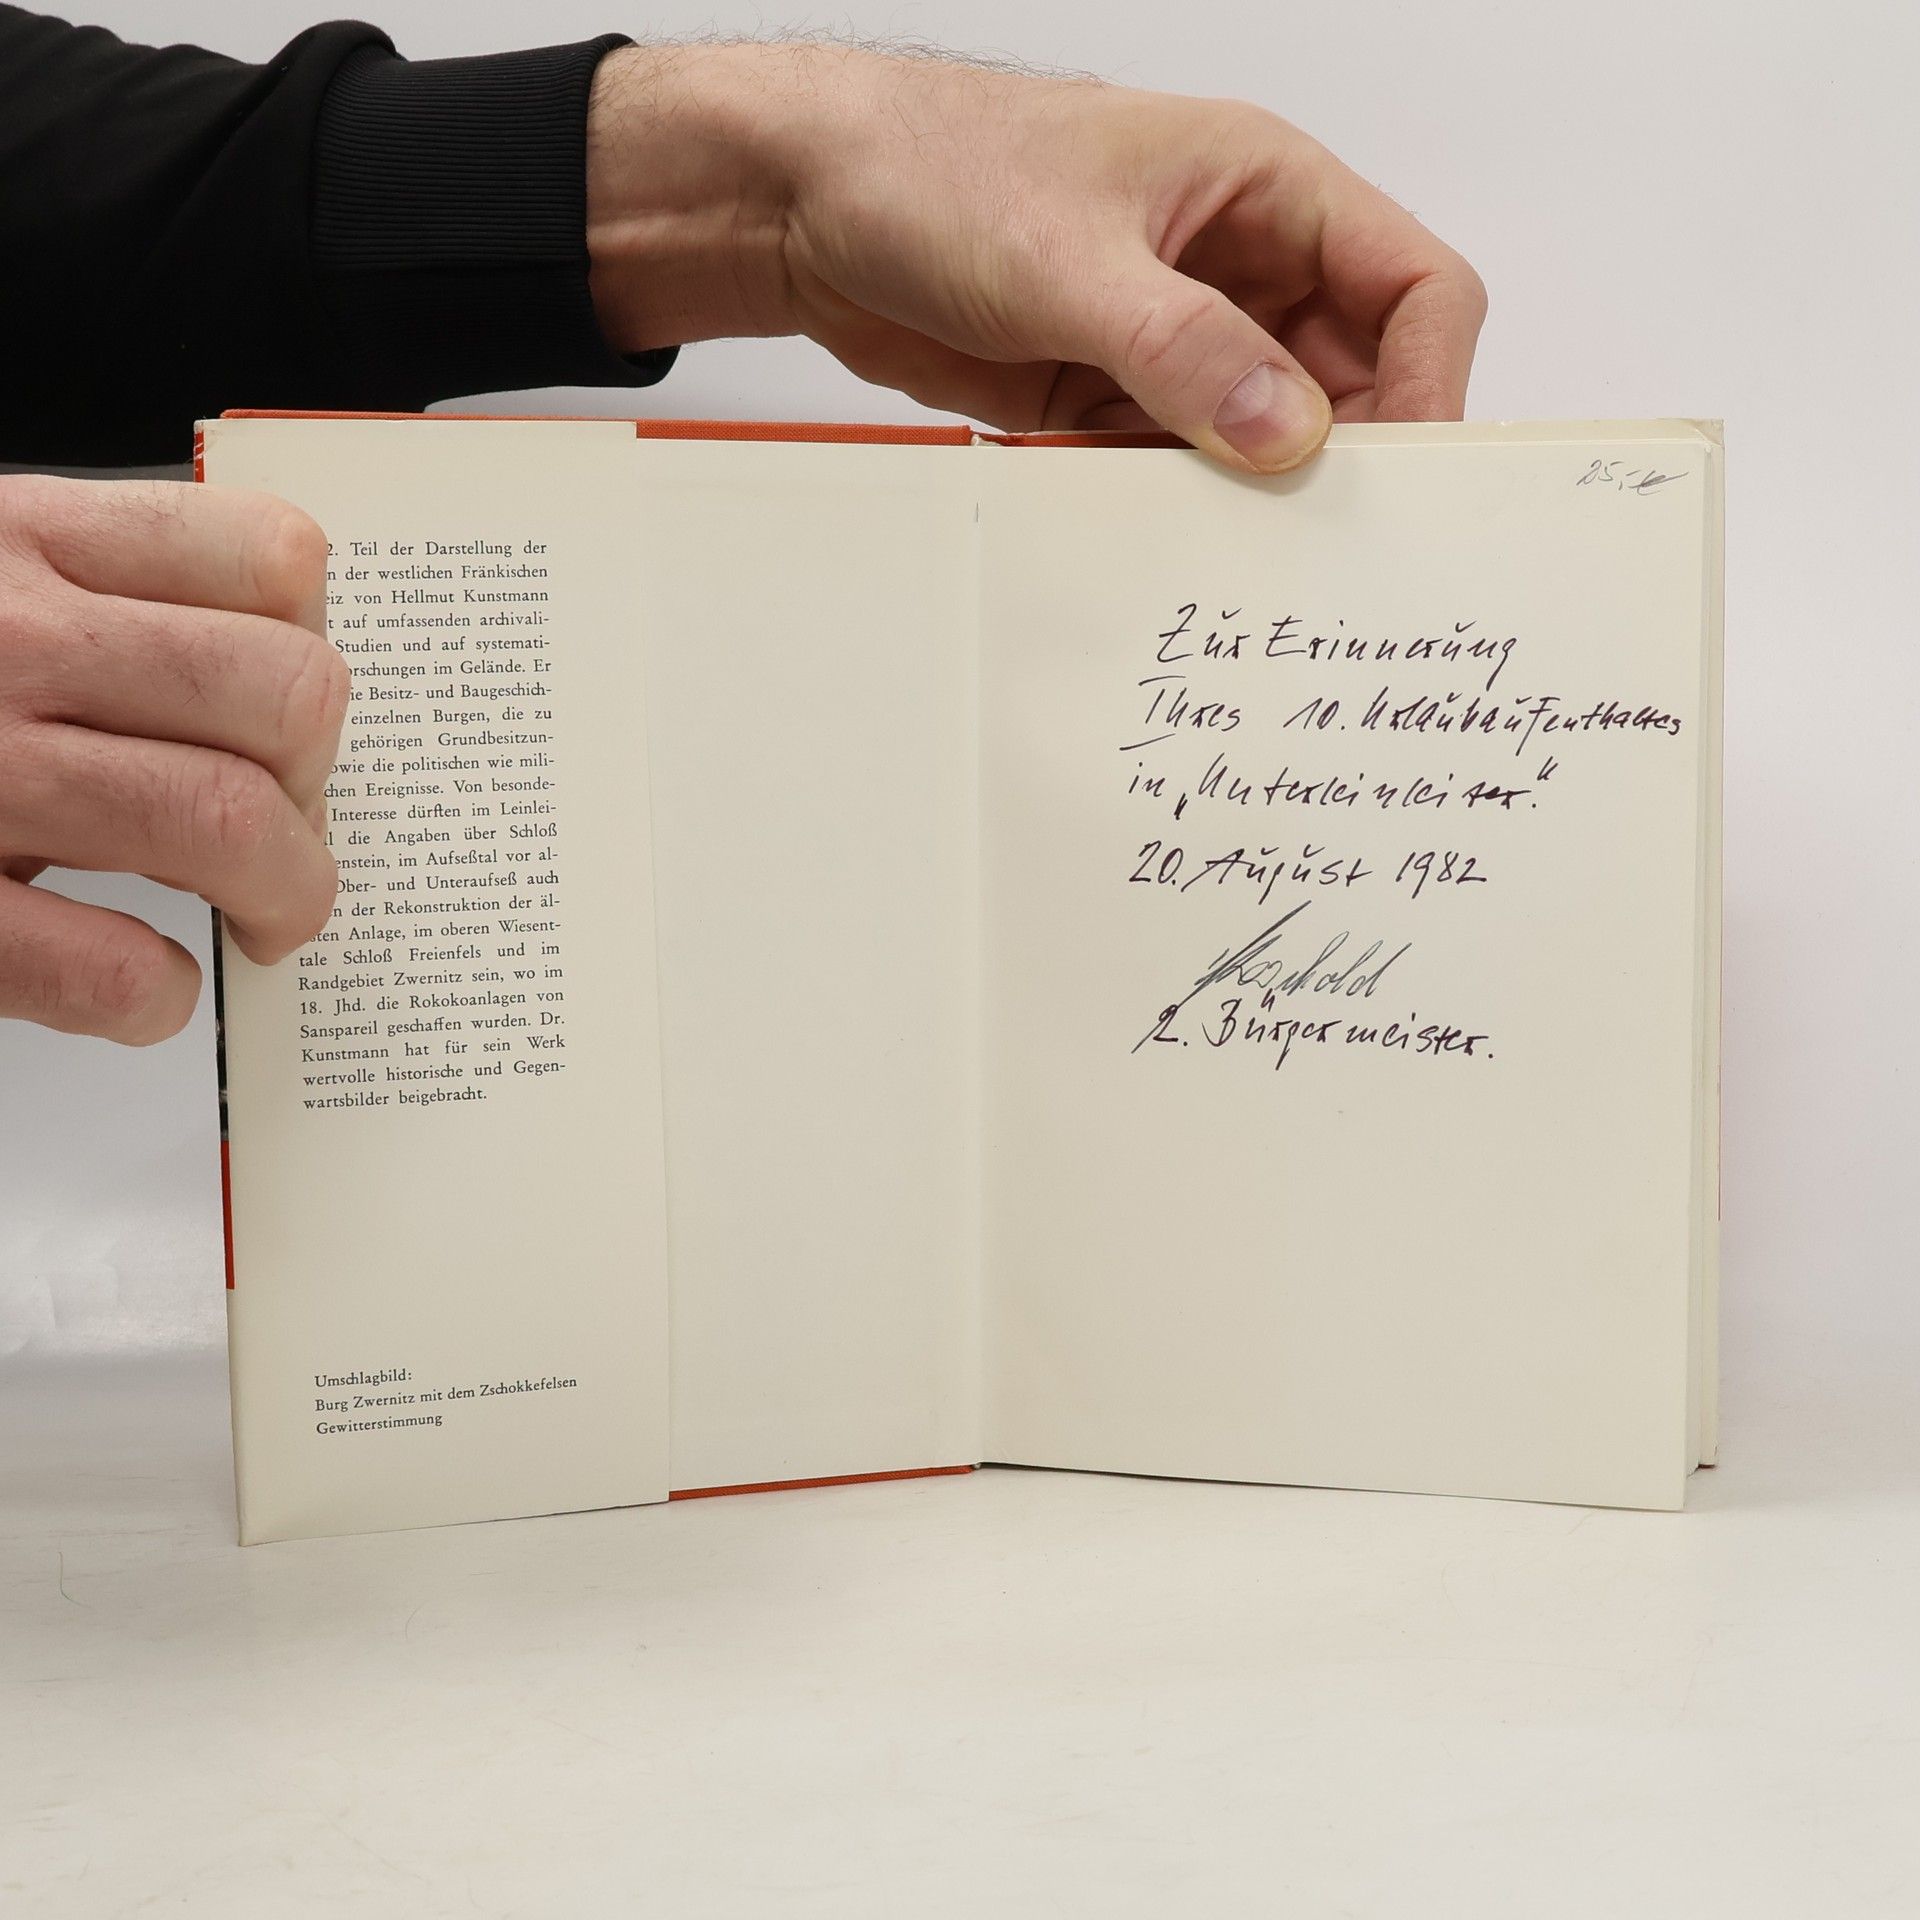 2. Teil der Darstellung der
der westlichen Fränkischen
von Hellmut Kunstmann
auf umfassenden archivali-
Studien und auf systemati-
orschungen im Gelände. Er
ie Besitz- und Baugeschich-
einzelnen Burgen, die zu
gehörigen Grundbesitzun-
owie die politischen wie mili-
chen Ereignisse. Von besonde-
Interesse dürften im Leinlei-
die Angaben über Schloß
enstein, im Aufseßtal vor al-
Ober- und Unteraufseß auch
der Rekonstruktion der äl-
sten Anlage, im oberen Wiesent-
tale Schloß Freienfels und im
Randgebiet Zwernitz sein, wo im
18. Jhd. die Rokokoanlagen von
Sanspareil geschaffen wurden. Dr.
Kunstmann hat für sein Werk
wertvolle historische und Gegen-
wartsbilder beigebracht.
Umschlagbild:
Burg Zwernitz mit dem Zschokkefelsen
Gewitterstimmung
25,-€
Zur Erinnerung
Ihres 10. Urlaubaufenthaltes
in „Unterleinleiter."
20. August 1982
2. Bürgermeister.